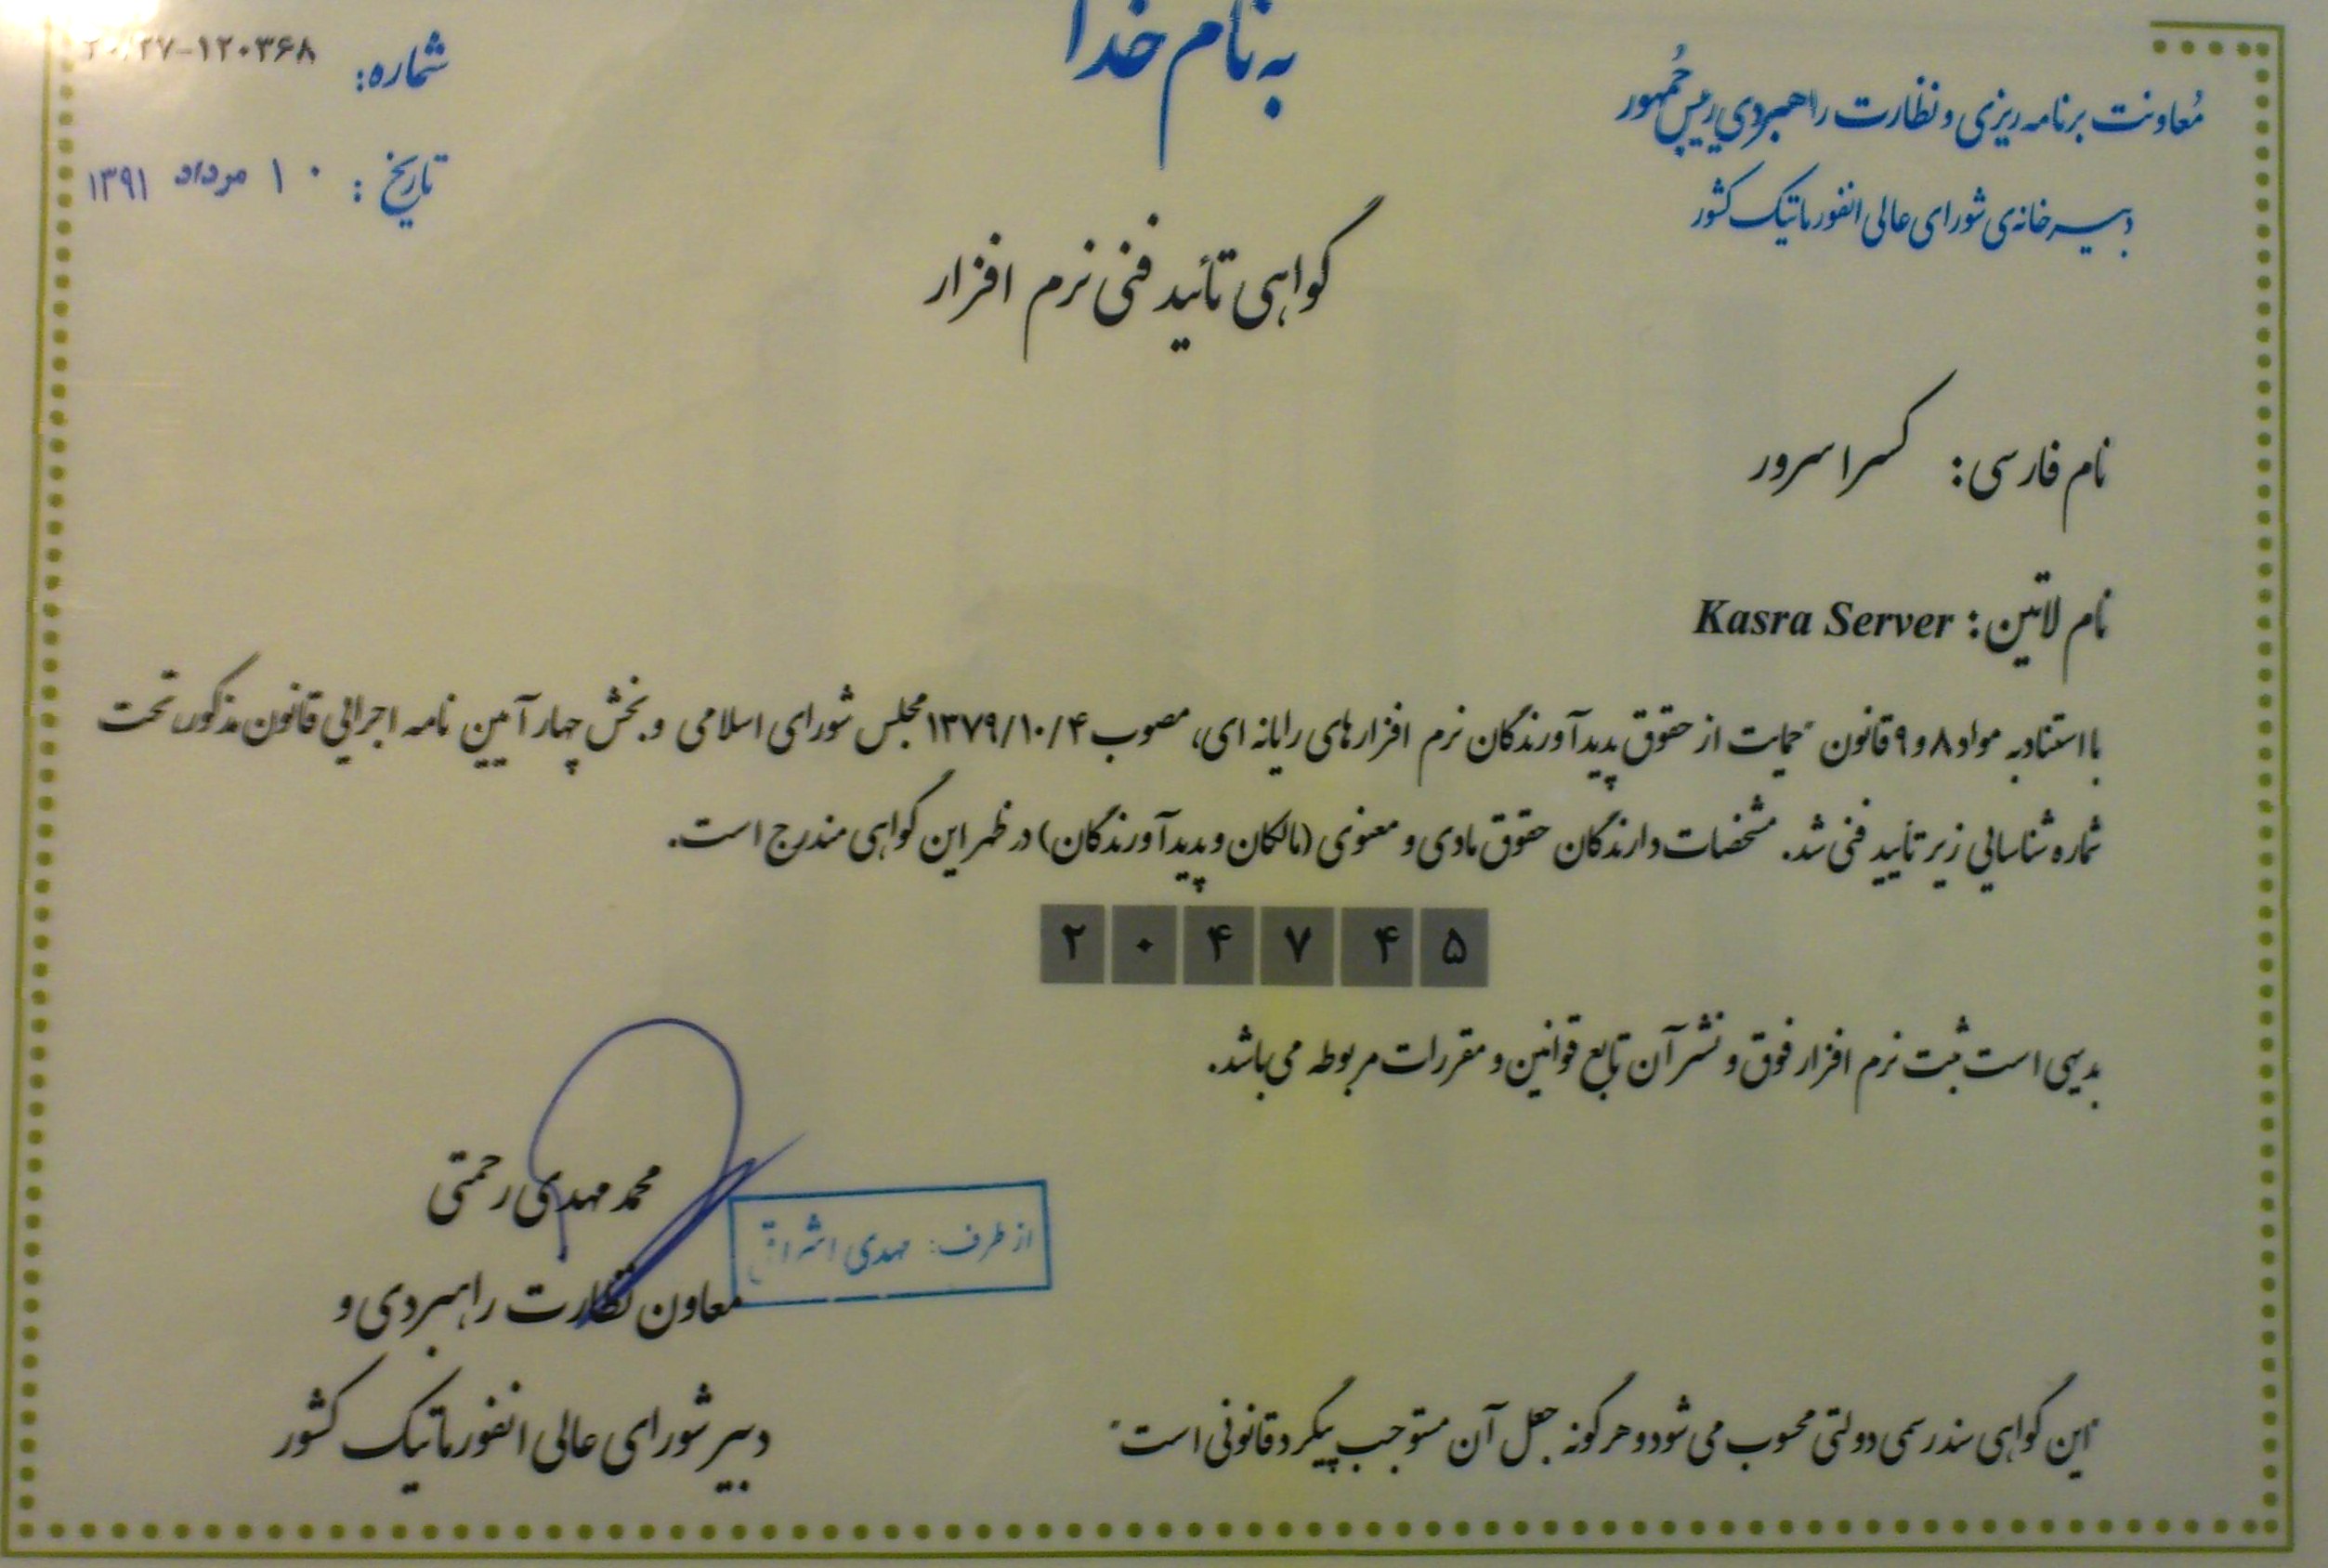 به نام خدا
معاونت برنامه ریزی و نظارت راهبردی رییس جمهور
دبیرخانه‌ی شورای عالی انفورماتیک کشور
شماره: ۱۲۰۳۶۸-
تاریخ: ۱۰ مرداد ۱۳۹۱
گواهی تأیید فنی نرم افزار
نام فارسی: کسرا سرور
نام لاتین: Kasra Server
با استناد به مواد ۸ و ۹ قانون "حمایت از حقوق پدیدآورندگان نرم افزارهای رایانه ای، مصوب ۱۳۷۹/۱۰/۴ مجلس شورای اسلامی و بخش چهار آیین نامه اجرایی قانون مذکور، تحت
شماره شناسایی زیر تأیید فنی شد. مشخصات دارندگان حقوق مادی و معنوی (مالکان و پدیدآورندگان) در ظهر این گواهی مندرج است.
۲۰۴۷۴۵
بدیهی است ثبت نرم افزار فوق و نشر آن تابع قوانین و مقررات مربوطه می باشد.
محمد مهدی رحمتی
از طرف: مهدی اشراقی
معاون نظارت راهبردی و
دبیر شورای عالی انفورماتیک کشور
"این گواهی سند رسمی دولتی محسوب می شود و هرگونه جعل آن مستوجب پیگرد قانونی است"